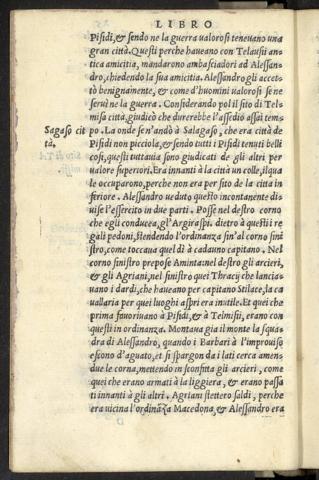 LIBRO
Pisidi,& sendo ne la guerra ualorosi teneuano una
gran città. Questi perche haueano con Telausii an-
tica amicitia, mandarono ambasciadori ad Alessan-
dro, chiedendo la sua amicitia. Alessandro gli accet-
tò benignamente, & come d'huomini ualorosi se ne
seruì ne la guerra. Considerando poi il sito di Tel-
misa città, giudicò che durerebbe l'assedio assai tem-
Sagaso cit
tà.
po. La onde sen'andò à Salagaso, che era città de
Pisidi non picciola, & sendo tutti i Pisidi tenuti belli
cosi, questi tuttauia sono giudicati de gli altri per
ualore superiori. Era innanti à la città un colle, ilqua
le occuparono, perche non era per sito de la citta in
feriore. Alessandro ueduto questo incontanente di-
uise l'essercito in due parti. Posse nel destro corno
che egli conducea, gl'Argiraspi. dietro à questi i re
gali pedoni, stendendo l'ordinanza sin'al corno sini
stro, come toccaua quel dì à cadauno capitano. Nel
corno sinistro prepose Aminta: nel destro gli arcieri,
& gli Agriani, nel sinistro quei Thracij che lancia-
uano i dardi, che haueano per capitano Stilace, la ca
uallaria per quei luoghi aspri era inutile. Et quei che
prima fauoriuano à Pisidi, & à Telmisii, erano con
questi in ordinanza. Montaua gia il monte la squa-
dra di Alessandro, quando i Barbari à l'improuiso
escono d'aguato, et si spargon da i lati cerca amen-
due le corna, mettendo in sconfitta gli arcieri, come
quei che erano armati à la liggiera, & erano passa
ti innanti à gli altri. Agriani stettero saldi, perche
era uicina l'ordinãza Macedona, & Alessandro era